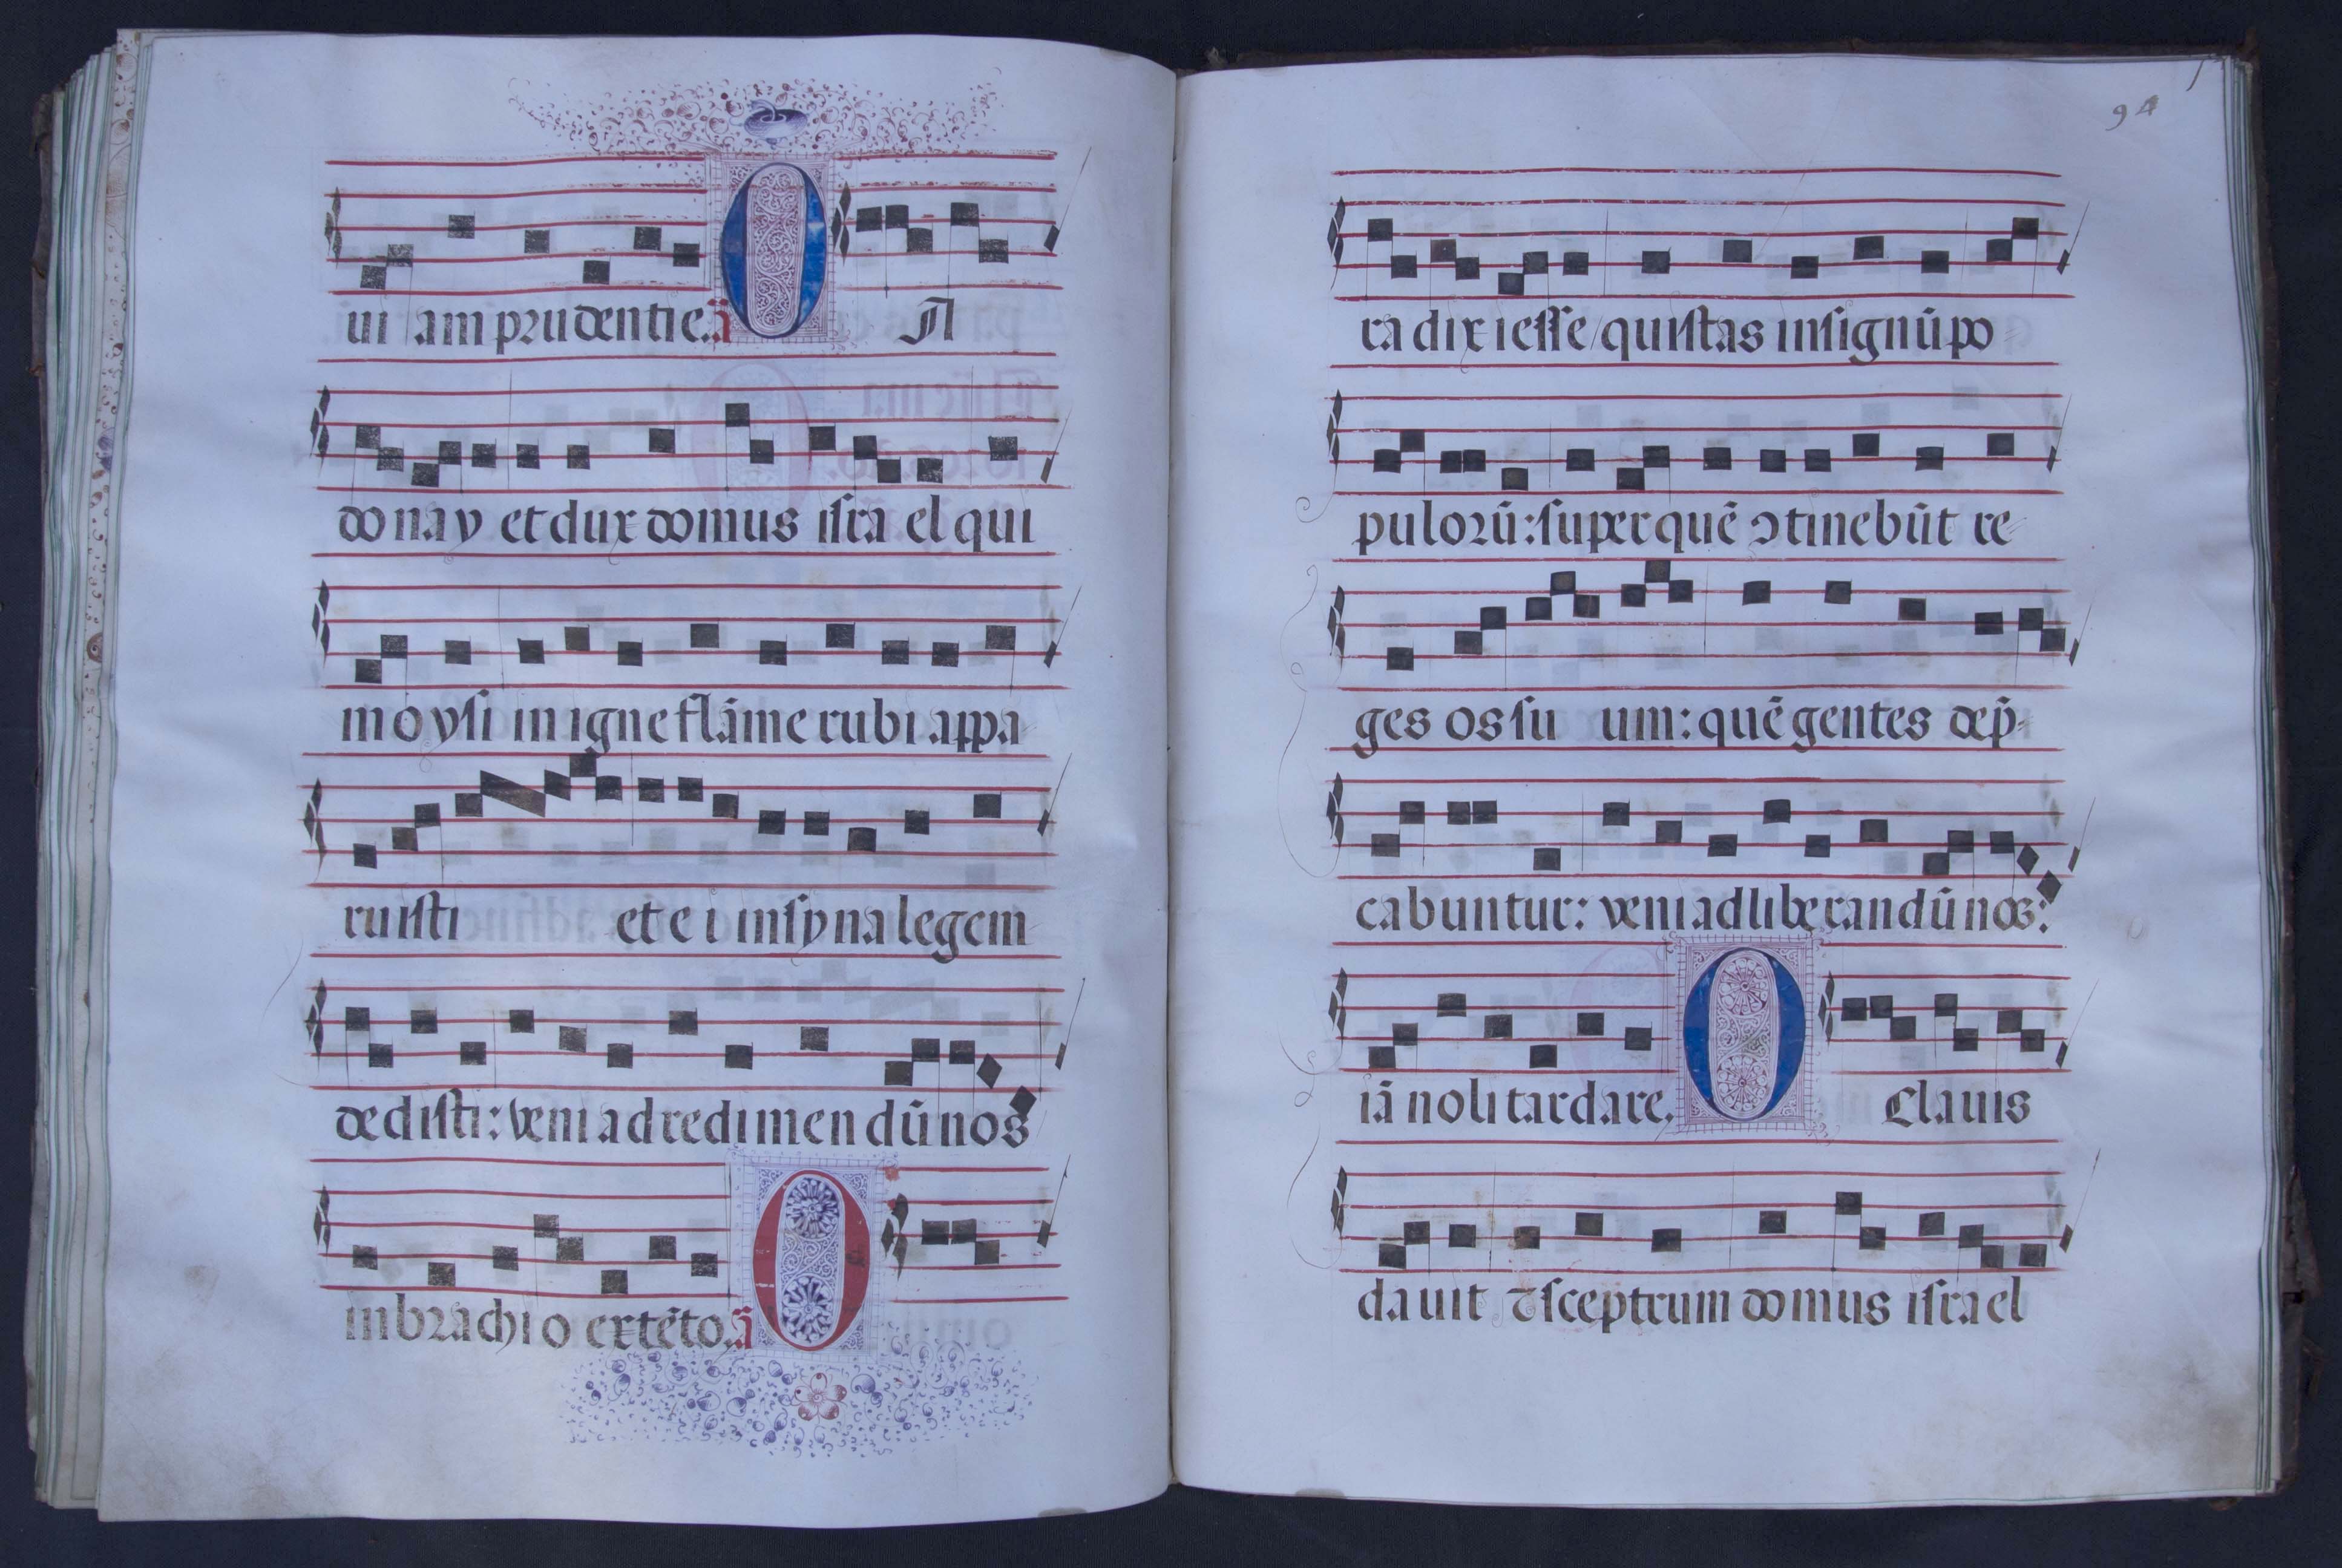 ui am prudentie. a͂ O A
donay et dux domus isra el qui
moysi in igne flāme rubi appa
ruisti et e i in syna legem
dedisti: veni ad redimendū nos
in brachio extēto. a͂ O
94
radix iesse / qui stas in signū po
pulorū: super quē ↄtinebūt re
ges os su um: quē gentes dep̄
cabuntur: veni ad liberandū nos:
iā noli tardare. O Clauis
dauit ⁊ sceptrum domus israel